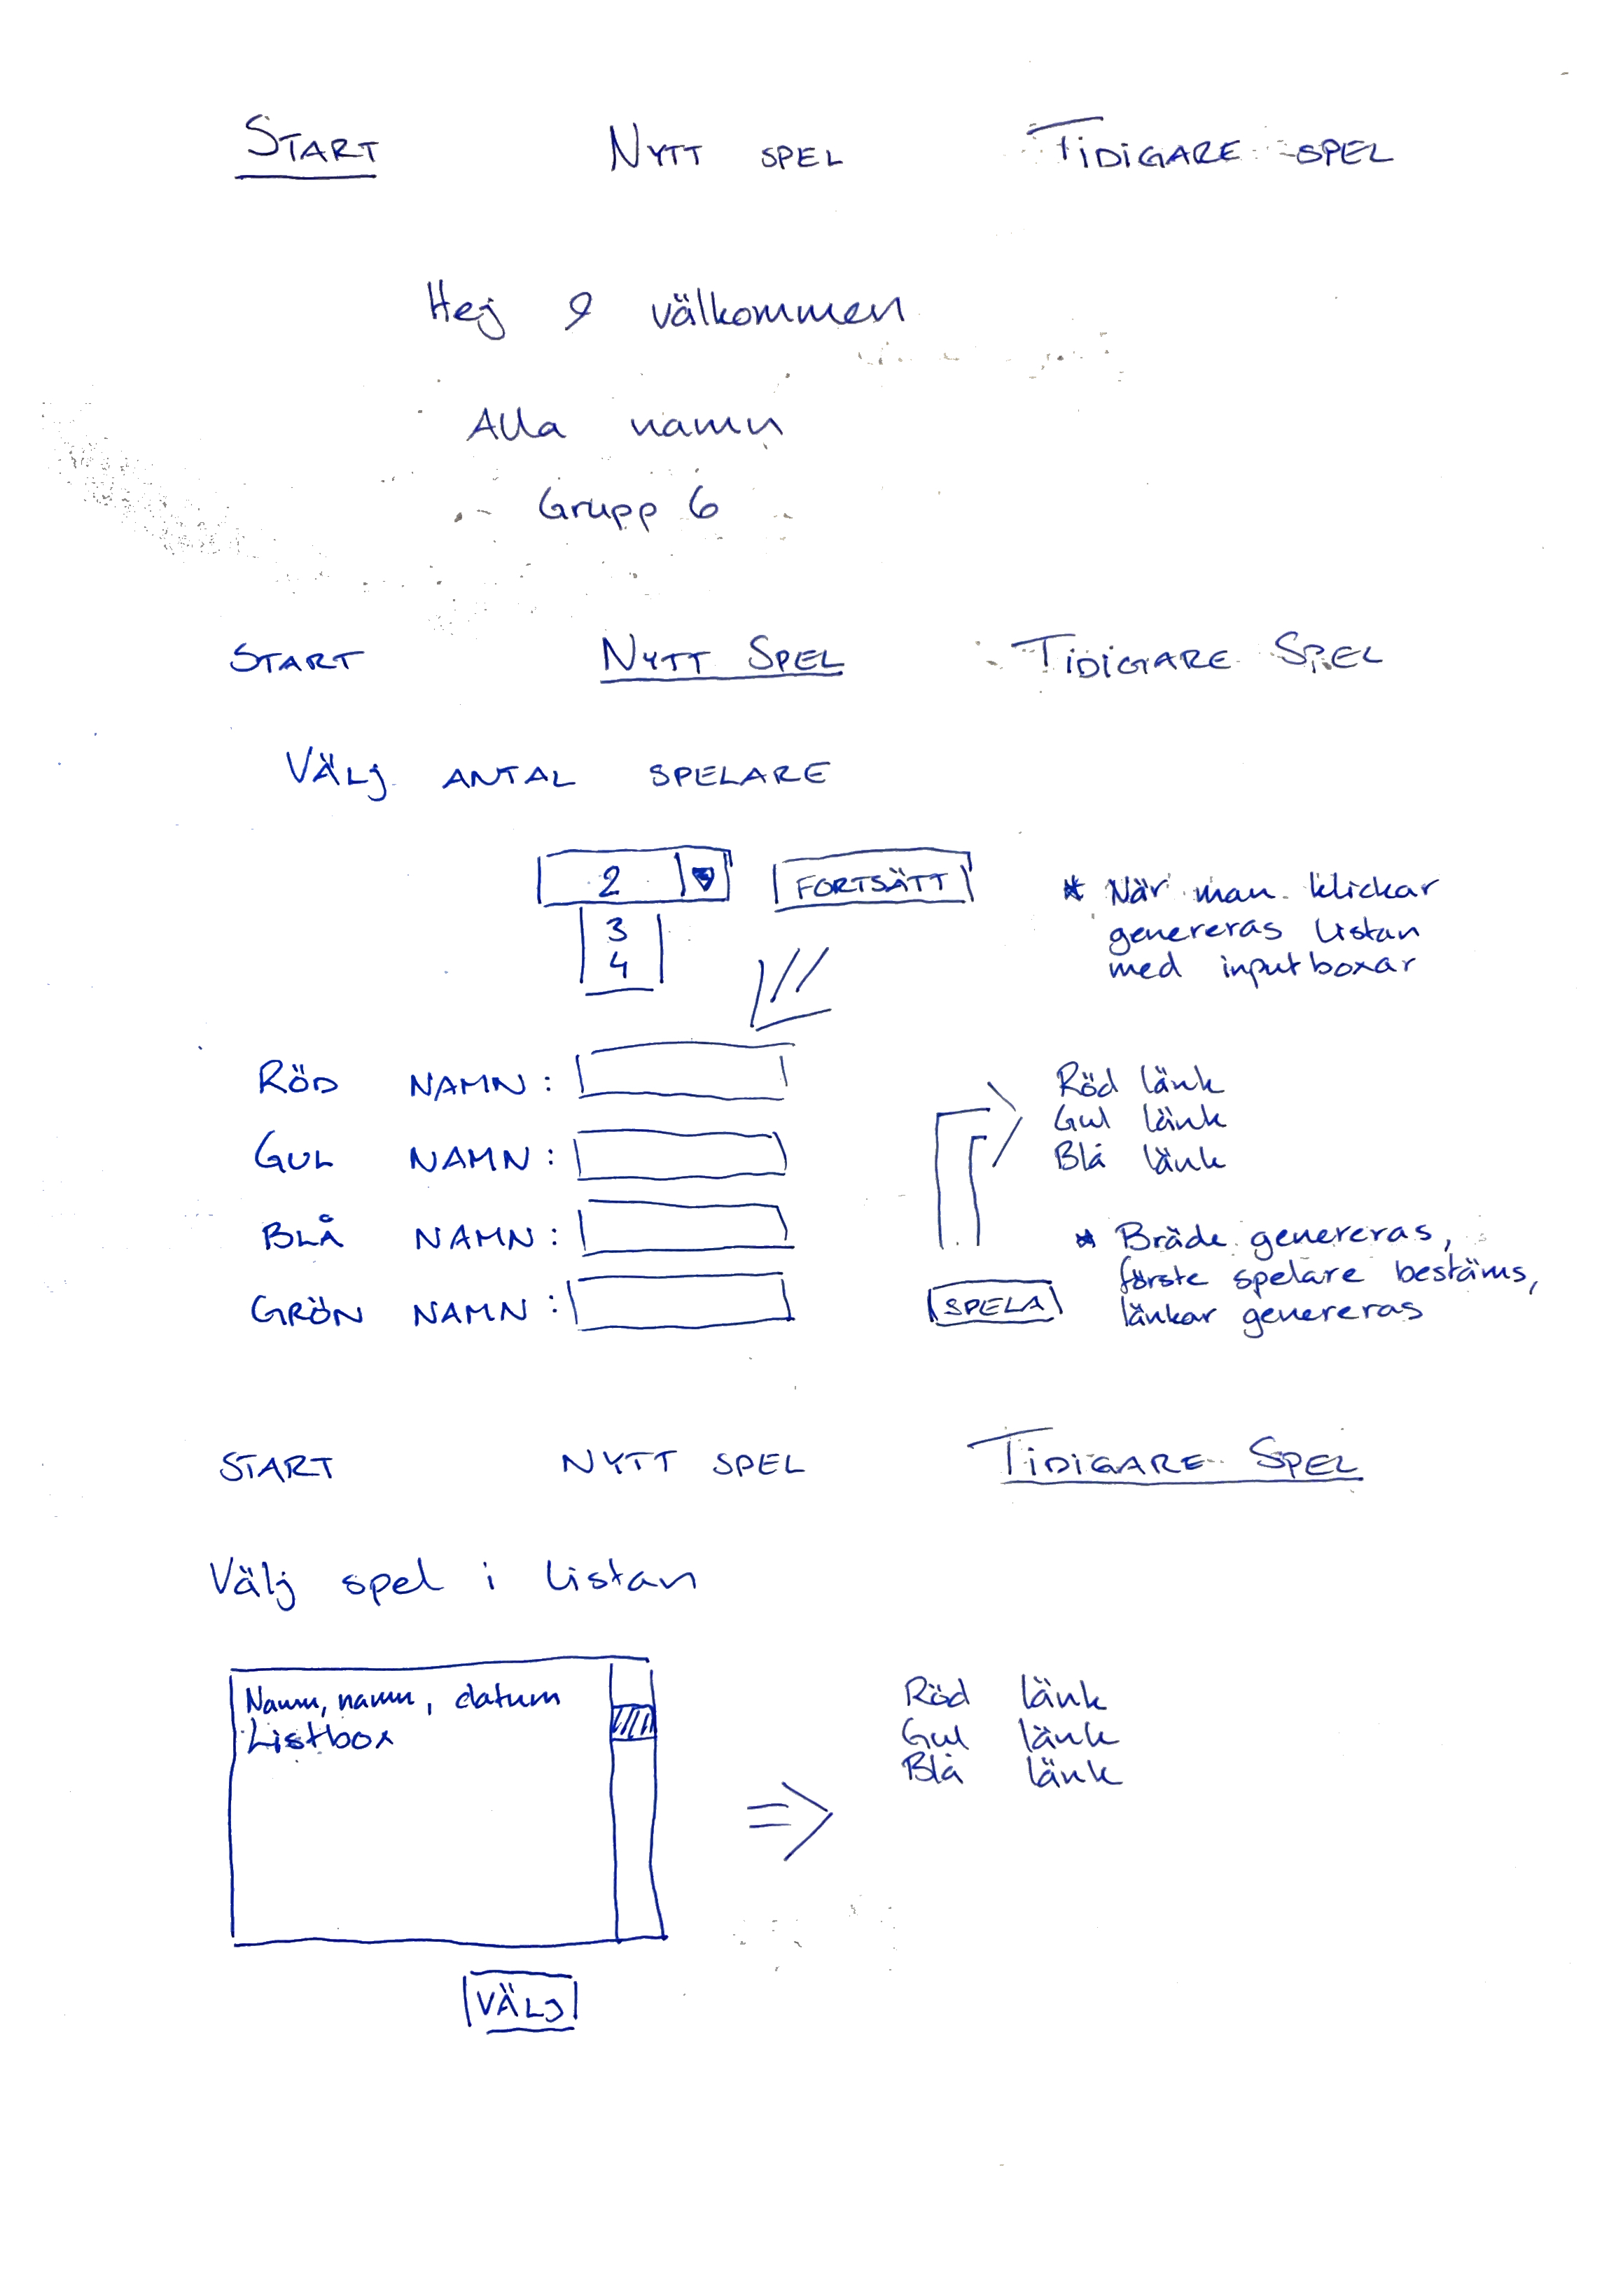 START NYTT SPEL TIDIGARE SPEL
Hej & välkommen
Alla namn
Grupp 6
START NYTT SPEL TIDIGARE SPEL
VÄLJ ANTAL SPELARE
2 FORTSÄTT
3
4
* När man klickar
genereras listan
med inputboxar
RÖD NAMN:
GUL NAMN:
BLÅ NAMN:
GRÖN NAMN:
Röd länk
Gul länk
Blå länk
SPELA
* Bräde genereras,
förste spelare bestäms,
länkar genereras
START NYTT SPEL TIDIGARE SPEL
Välj spel i listan
Namn, namn, datum
Listbox
Röd länk
Gul länk
Blå länk
VÄLJ